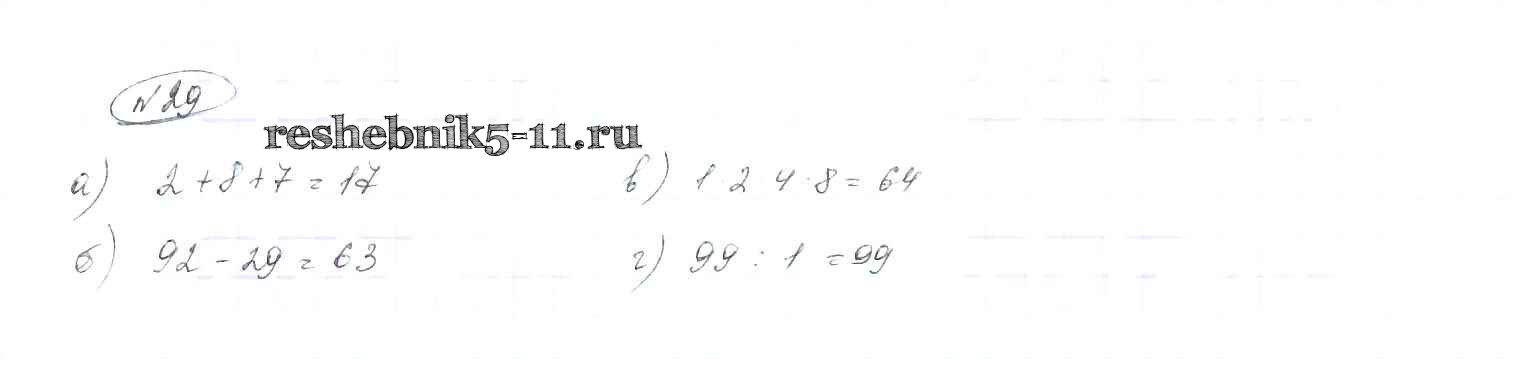 №29
reshebnik5-11.ru
а) 2+8+7=17
в) 1·2·4·8=64
б) 92-29=63
г) 99:1=99